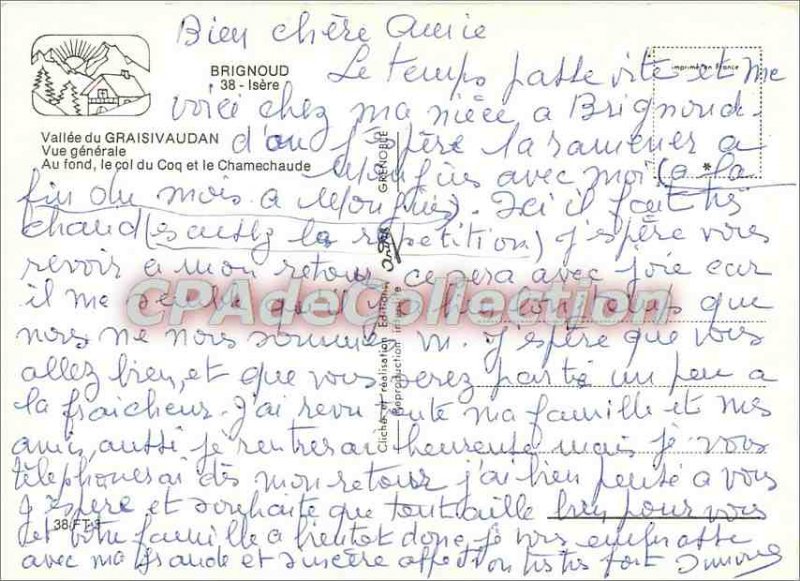 Bien chère Amie
BRIGNOUD
38 - Isère
imprimé en France
Le temps passe vite et me
voici chez ma nièce a Brignoud
Vallée du GRAISIVAUDAN
Vue générale
Au fond, le col du Coq et le Chamechaude
d'où j'espère la ramener a
Mougins avec moi (a la
*
fin du mois a Mougins). Ici il fait très
chaud (excusez la répétition) j'espère vous
revoir a mon retour, ce sera avec joie car
il me semble qu'il y a bien longtemps que
nous ne nous sommes vu. j'espère que vous
allez bien, et que vous serez partie un peu a
la fraicheur. J'ai revu toute ma famille et mes
amis, aussi je rentrerai heureuse mais je vous
téléphonerai dès mon retour j'ai bien pensé a vous
j'espère et souhaite que tout aille bien pour vous
et votre famille a bientot donc, je vous embrasse
avec ma grande et sincère affection très très fort Simone
38 FT 3
Cliché et réalisation Editions André GRENOBLE
Reproduction interdite
CPADeCollection